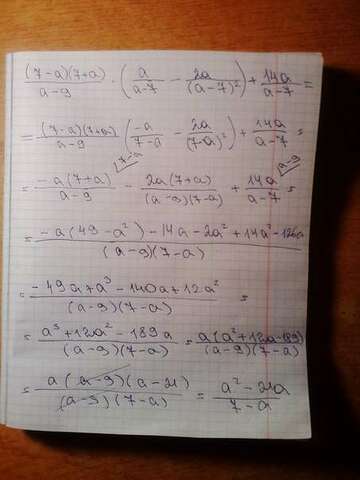 (7-a)(7+a)/(a-9) · (a/(a-7) - 2a/(a-7)²) + 14a/(a-7) =
= (7-a)(7+a)/(a-9) · (-a/(7-a) - 2a/(7-a)²) + 14a/(a-7) =
= -a(7+a)/(a-9) /7-a - 2a(7+a)/((a-9)(7-a)) + 14a/(a-7) /a-9 =
= (-a(49-a²) - 14a - 2a² + 14a² - 126a)/((a-9)(7-a))
= (-49a + a³ - 140a + 12a²)/((a-9)(7-a)) =
= (a³ + 12a² - 189a)/((a-9)(7-a)) = a(a² + 12a - 189)/((a-9)(7-a))
= a(a-9)(a-21)/((a-9)(7-a)) = (a² - 21a)/(7-a)